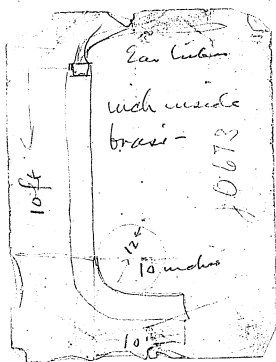 Ear tubes
inch inside
brass -
10 ft
12
10 inches
10 in